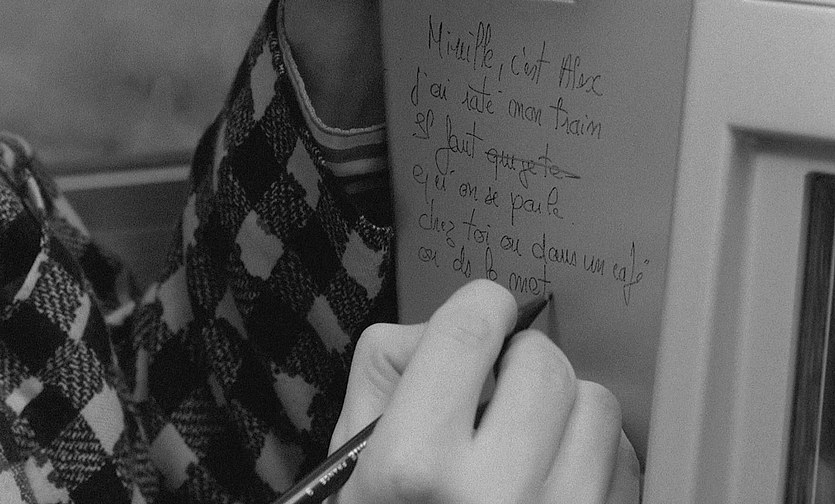 Mireille, c'est Alex
J'ai raté mon train
Il faut que je te
qu'on se parle
chez toi ou dans un café
ou ds le met